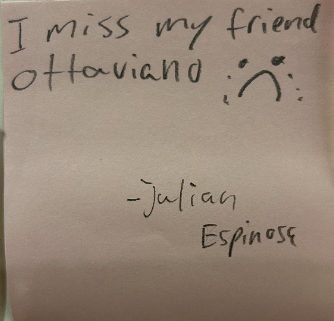 I miss my friend
Ottaviano
-Julian
Espinosa